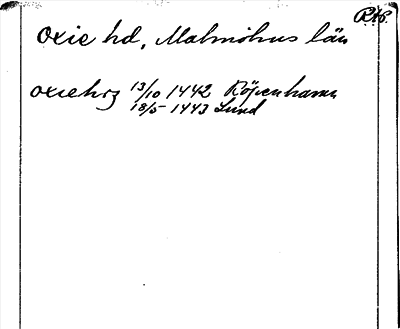 RAP.
Oxie hd, Malmöhus län
oxiehrz 13/10 1442 Köpenhamn
18/5 1443 Lund